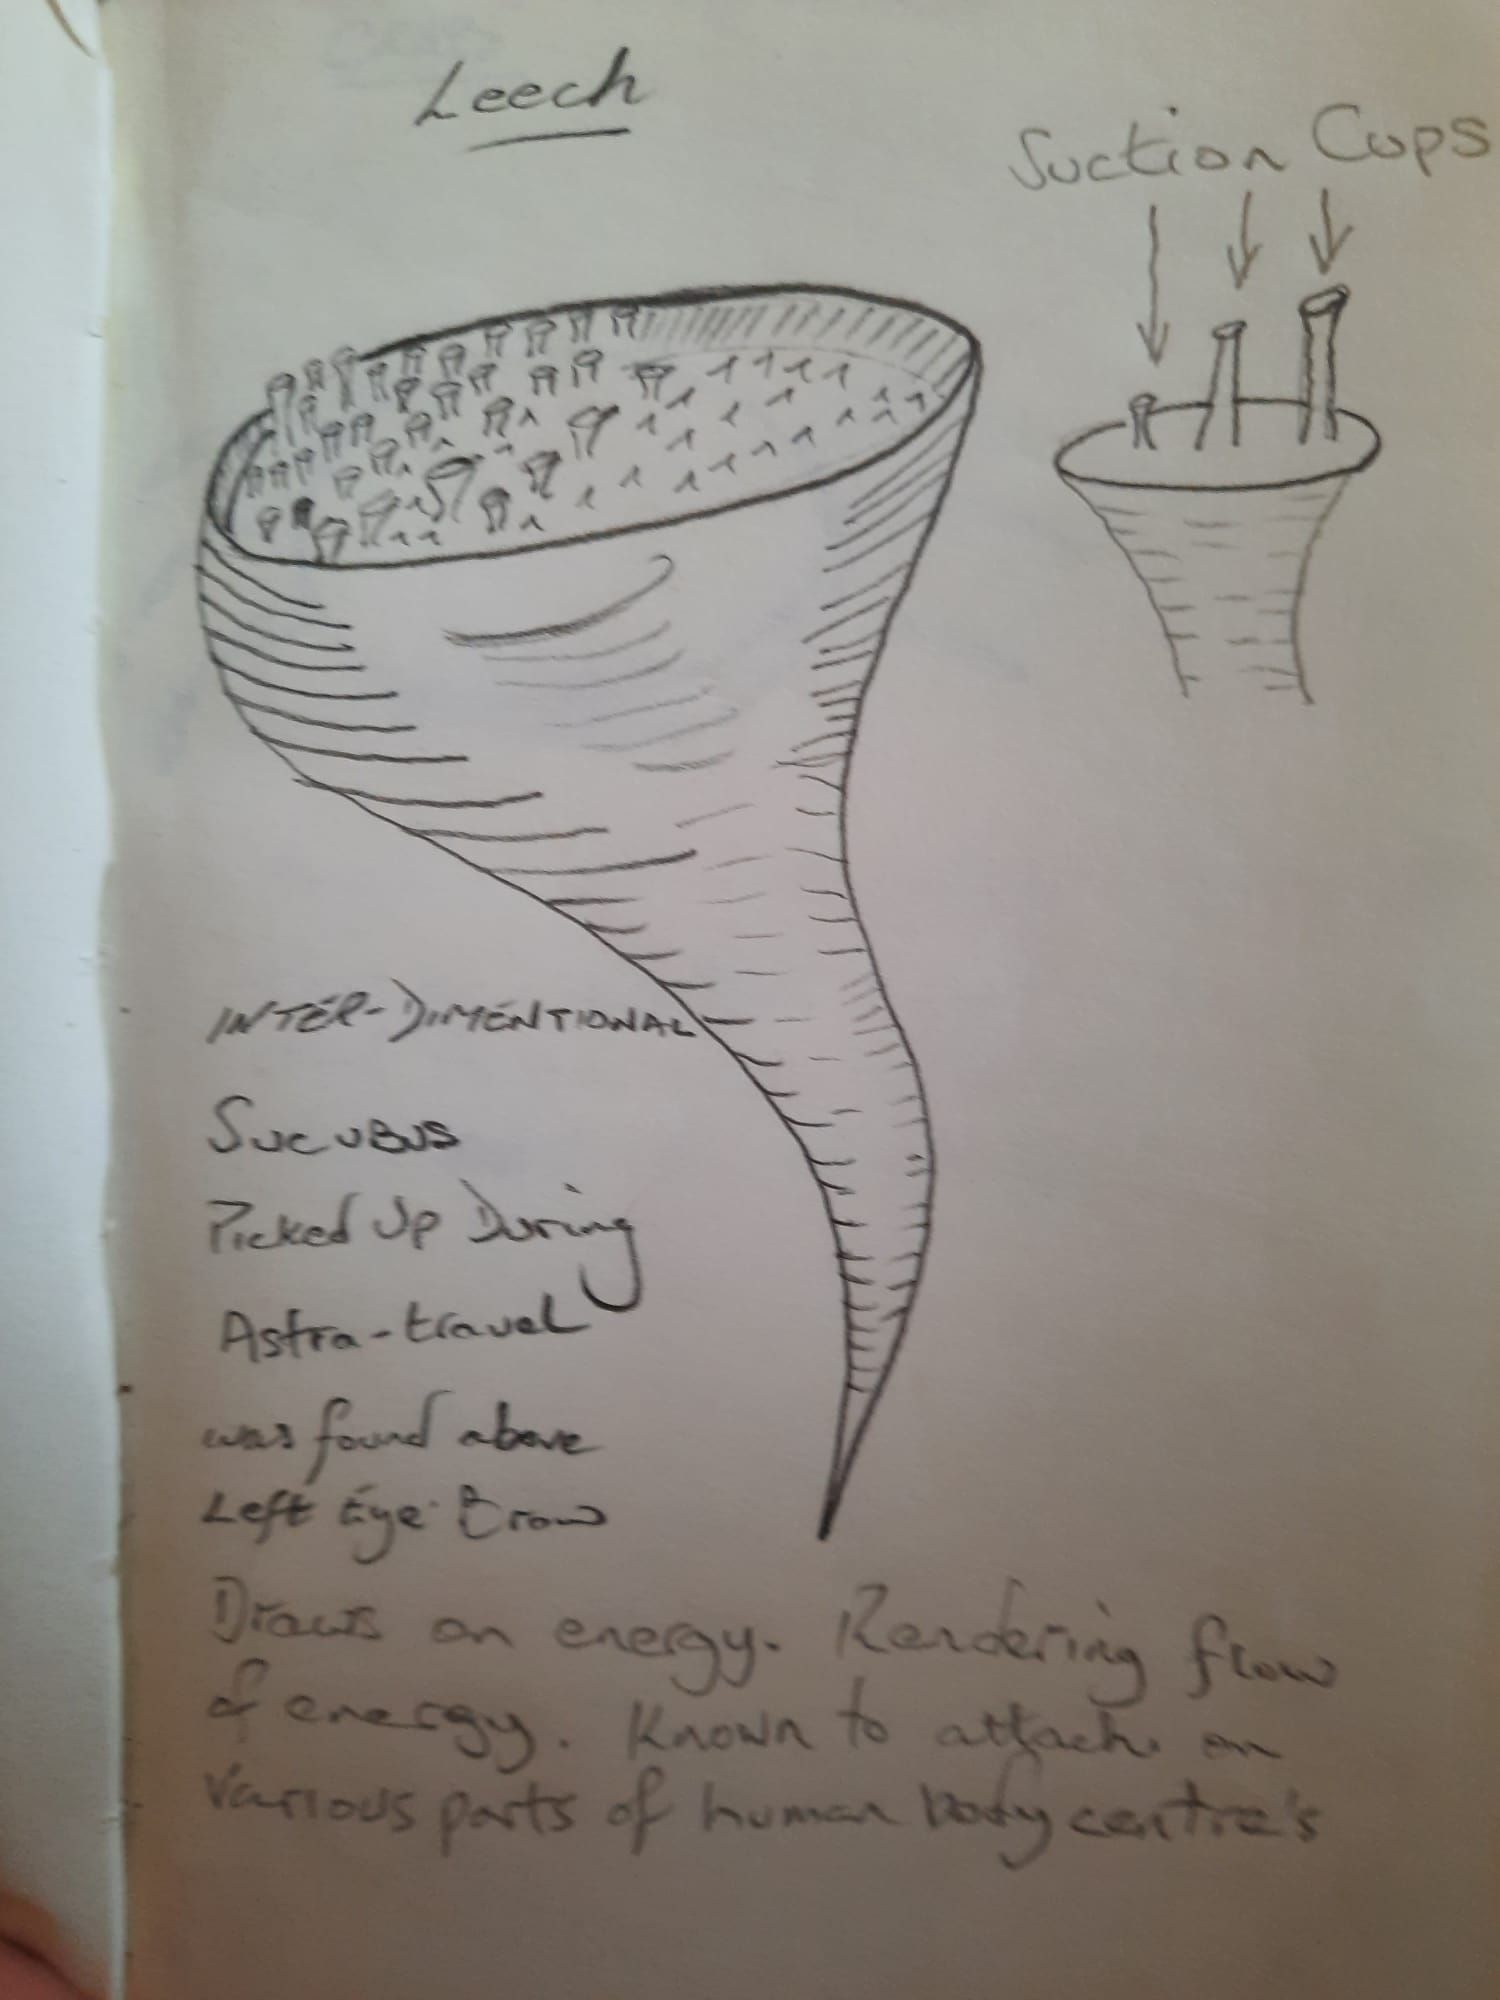 Leech
Suction Cups
INTER-DIMENTIONAL
SUCUBUS
Picked Up During
Astra-travel
was found above
Left Eye Brow
Draws on energy. Rendering flow
of energy. Known to attach on
various parts of human body centre's